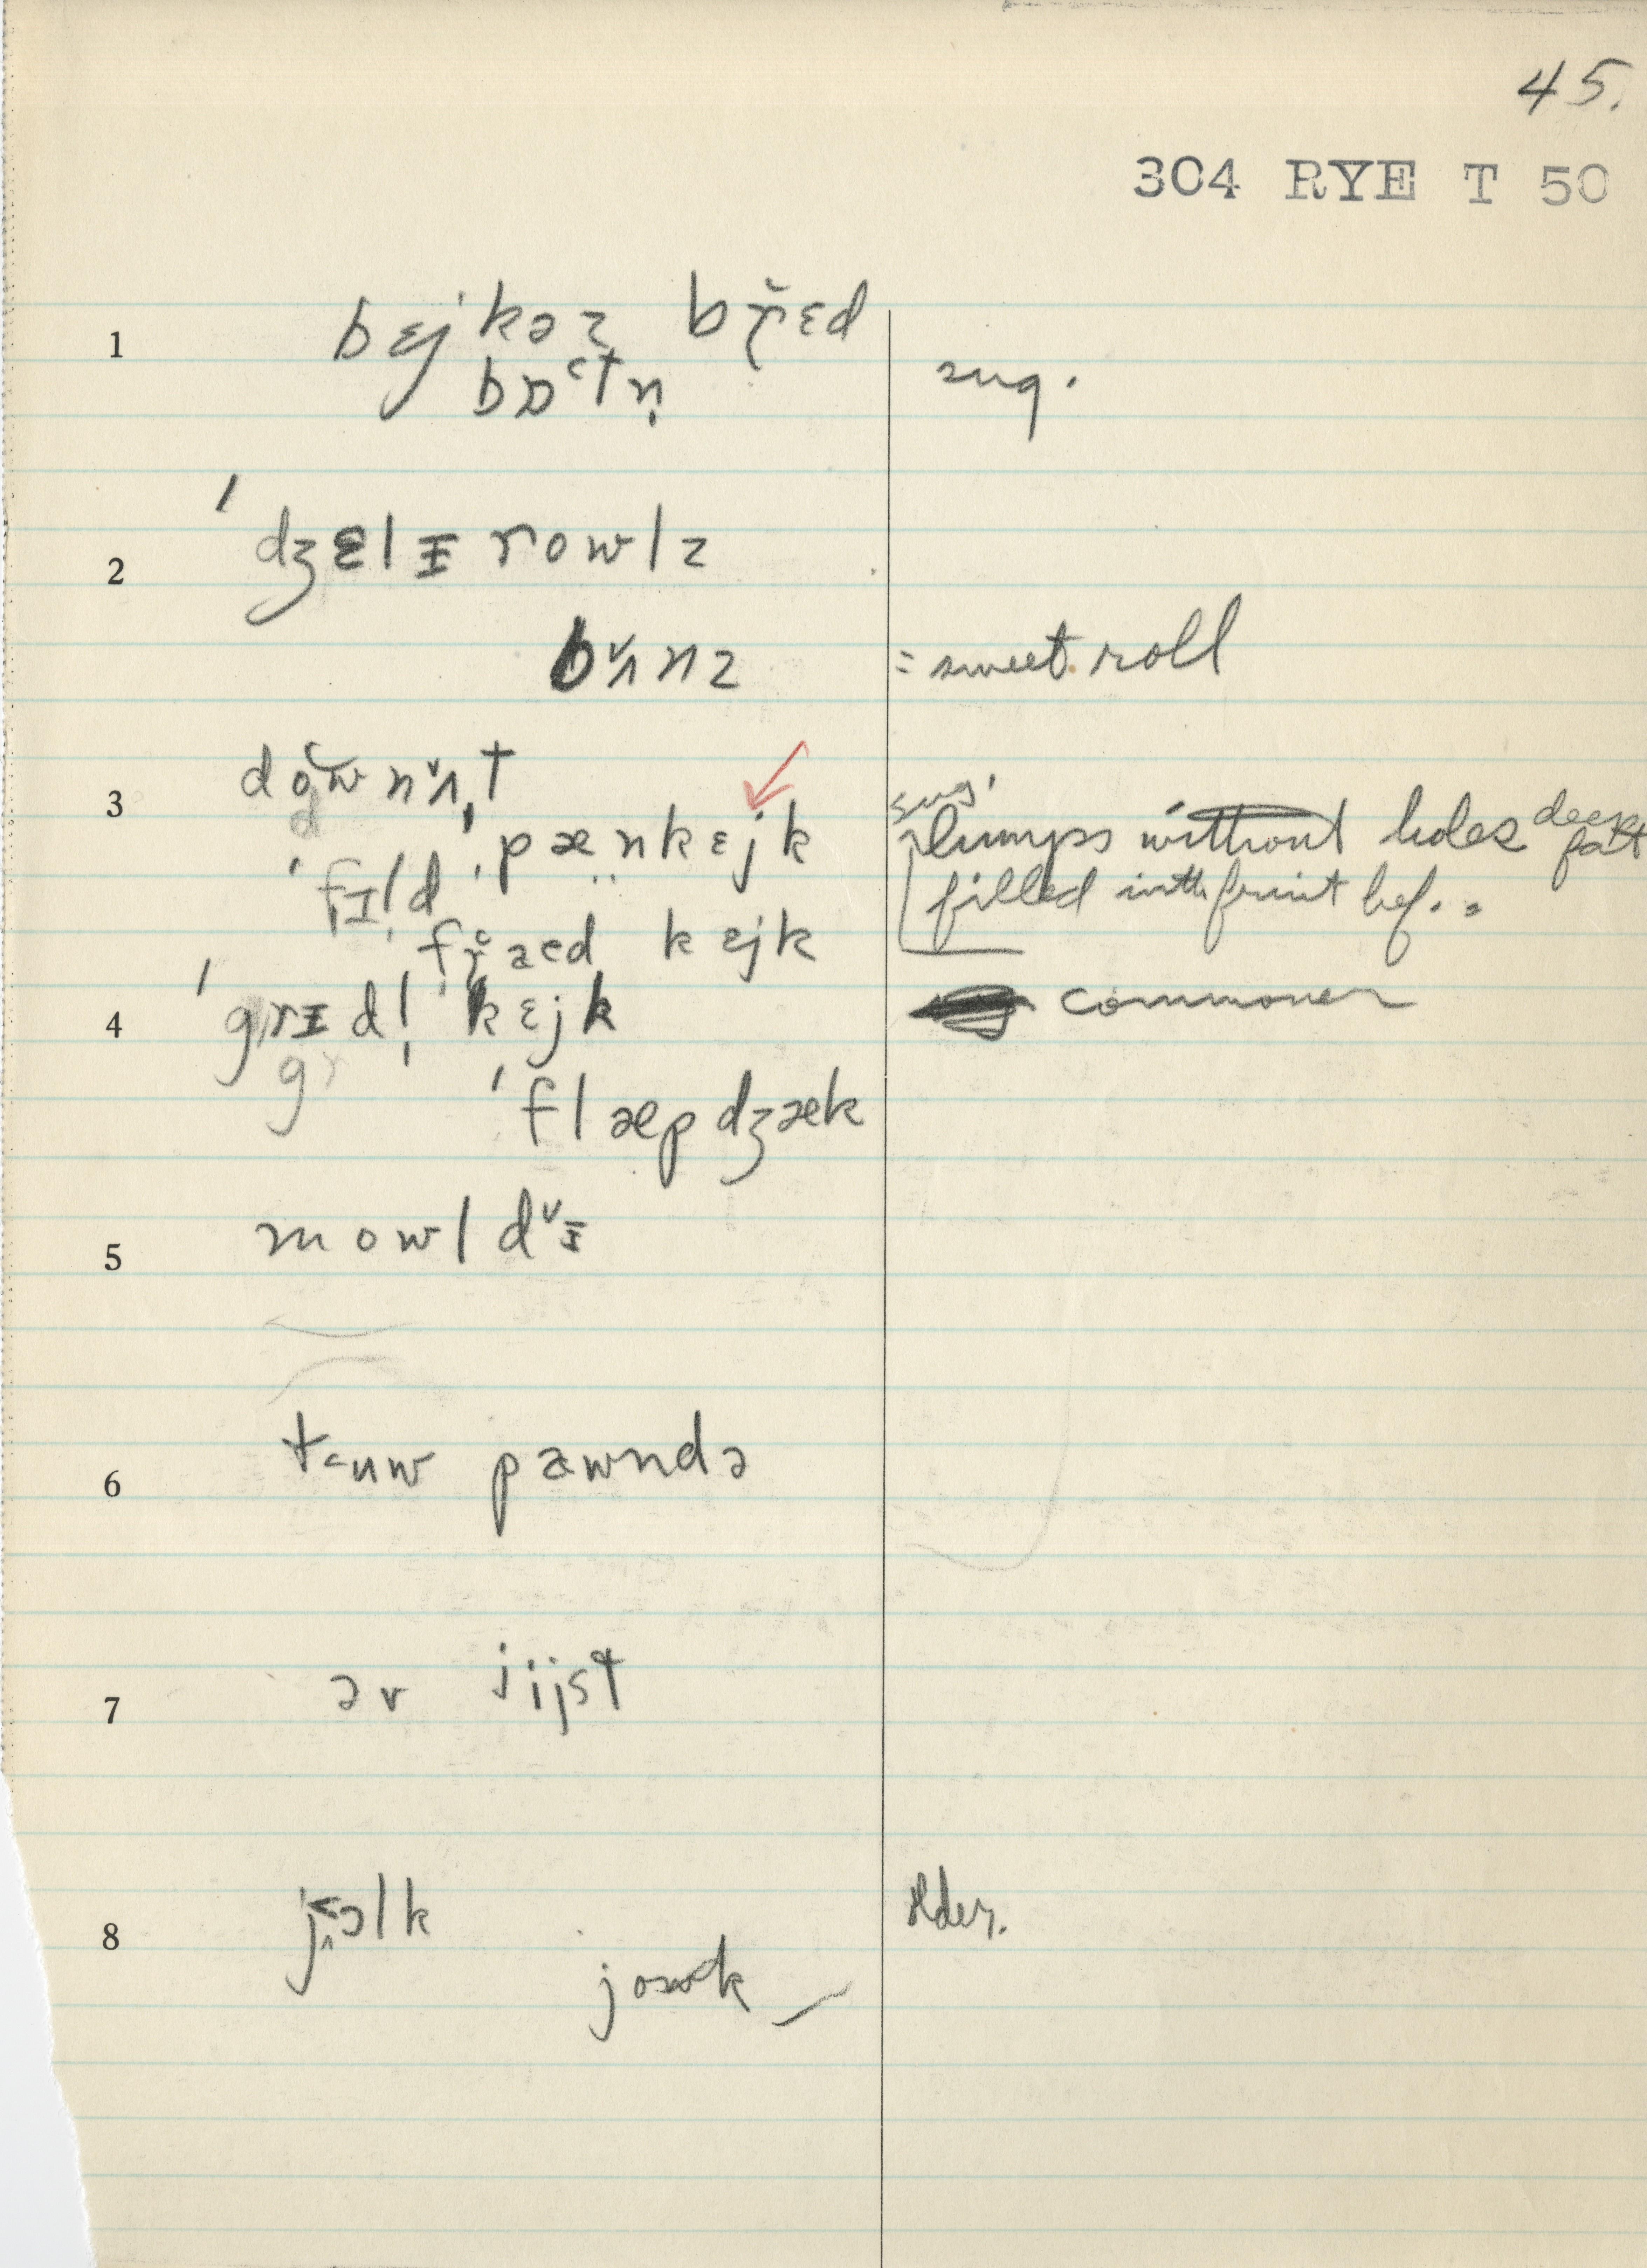 45.
304 RYE T 50
1 bɛjkəz br̆ɛd
bɒtn̩ sug.
2 ˈdʒɛlɪ rowlz
bʌ̌nz = sweet roll
3 downʌ̌t
ˈpænkɛjk sug. lumps without holes deep fat
ˈfɪld filled with fruit bef.
fraed kɛjk
4 ˈgrɪdl̩ kɛjk commoner
ˈflæpdʒæk
5 mowldˇɪ
6 tuw pawndə
7 əv jijst
8 jolk older.
jowk